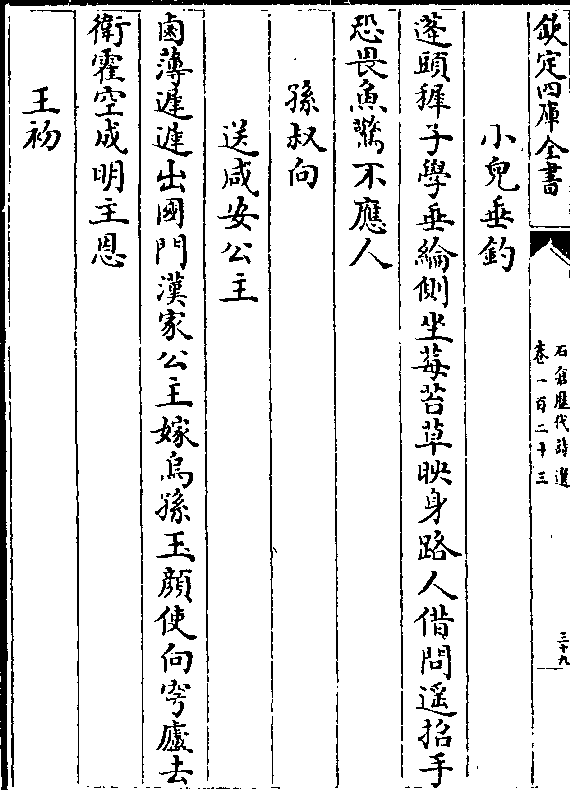 欽定四庫全書
石倉歷代詩選
卷一百二十三
三十九
小兒垂釣
蓬頭穉子學垂綸側坐莓苔草映身路人借問遥招手
恐畏魚驚不應人
孫叔向
送咸安公主
鹵薄遲遲出國門漢家公主嫁烏孫玉顔使向穹廬去
衛霍空成明主恩
王初